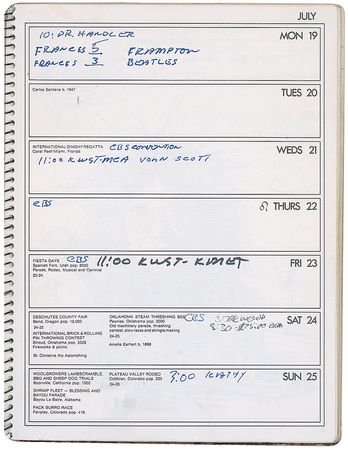 JULY
MON 19
10: DR. HANDLER
FRANCES 5 FRAMPTON
FRANCES 3 BEATLES
TUES 20
Carlos Santana b. 1947
WEDS 21
INTERNATIONAL DINGHY REGATTA
Coral Reef/Miami, Florida
CBS CONVENTION
11:00 KWST-MCA JOHN SCOTT
THURS 22
CBS
FRI 23
FIESTA DAYS
Spanish Fork, Utah pop. 8000
Parade, Rodeo, Musical and Carnival
23-24
CBS
11:00 KWST-KMET
SAT 24
DESCHUTES COUNTY FAIR
Bend, Oregon pop. 18,000
24-25
INTERNATIONAL BRICK & ROLLING
PIN THROWING CONTEST
Stroud, Oklahoma pop. 2500
Fireworks & picnic
St. Christina the Astonishing
OKLAHOMA STEAM THRESHING BEE
Pawnee, Oklahoma pop. 3000
Old machinery parade, threshing
contest, slow races and shingle making
24-25
Amelia Earhart b. 1898
CBS
SUN 25
WOOLGROWERS LAMBSCRAMBLE,
BBQ AND SHEEP DOG TRIALS
Boonville, California pop. 1000
SHRIMP FLEET — BLESSING AND
BAYOU PARADE
Bayou La Batre, Alabama
PACK BURRO RACE
Fairplay, Colorado pop. 419
PLATEAU VALLEY RODEO
Collbran, Colorado pop. 225
24-25
3:00 KATHY